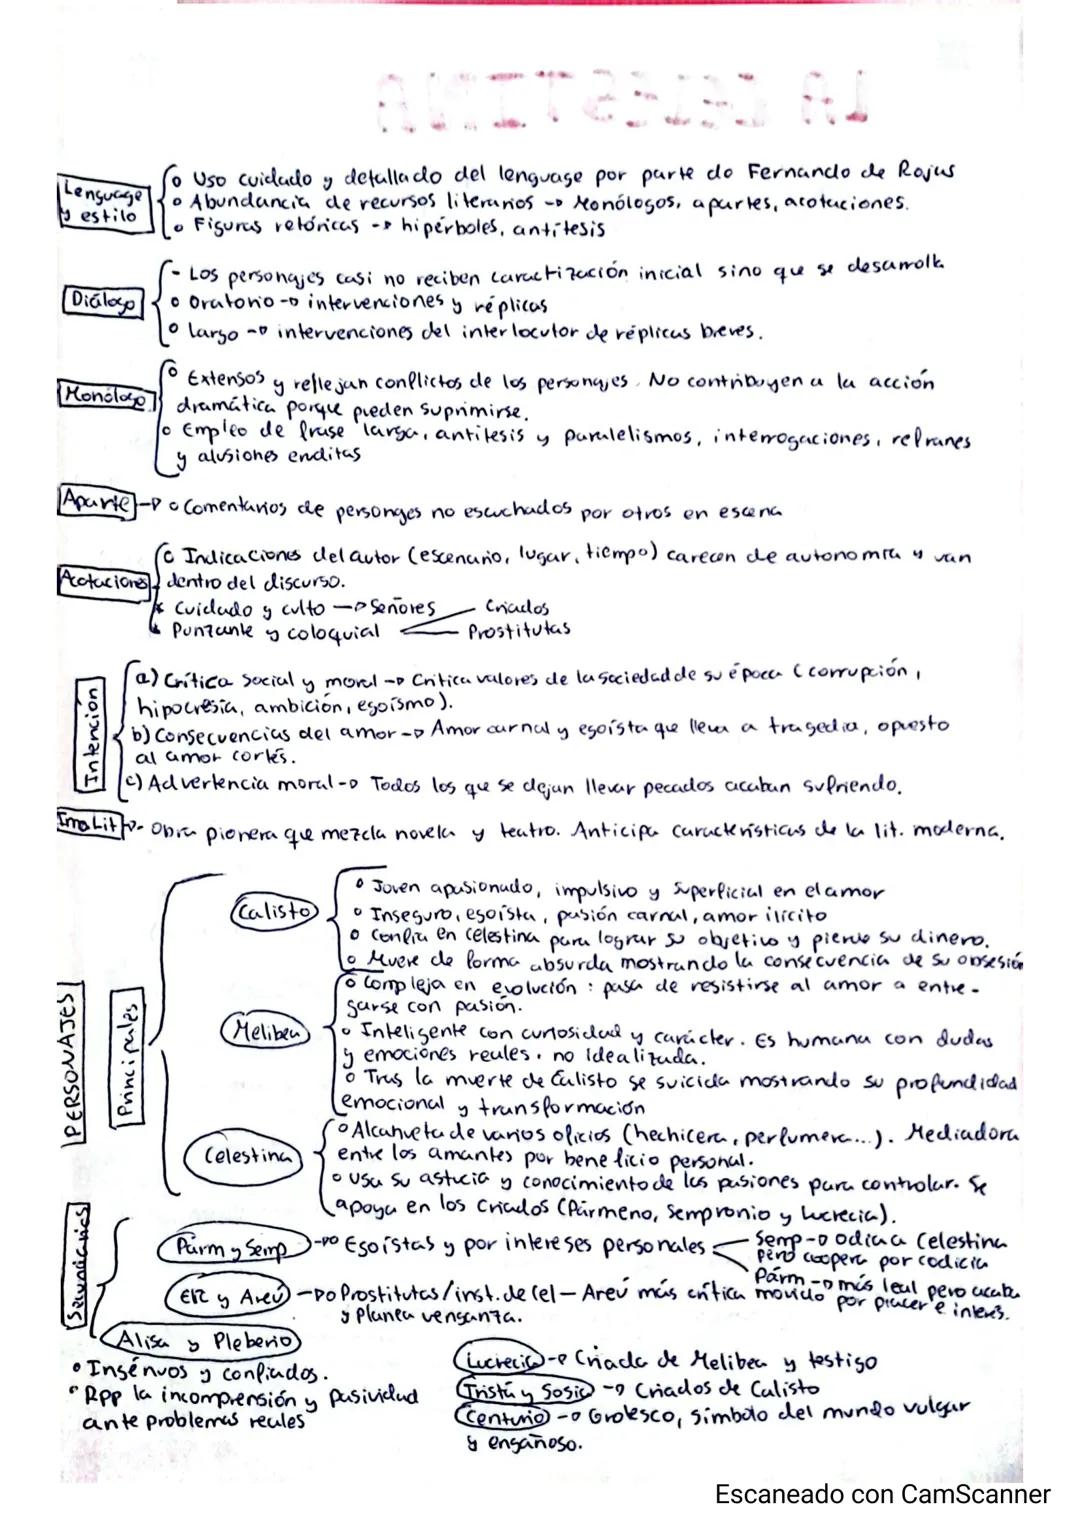 LA CELESTINA
Lenguage y estilo
o Uso cuidado y detallado del lenguage por parte do Fernando de Rojas
o Abundancia de recursos literarios -> Monólogos, apartes, acotaciones.
o Figuras retóricas -> hipérboles, antítesis
Diálogo
- Los personajes casi no reciben caractización inicial sino que se desarrolla
o Oratorio -> intervenciones y réplicas
o largo -> intervenciones del interlocutor de réplicas breves.
Monólogo
o Extensos y reflejan conflictos de los personajes. No contribuyen a la acción
dramática porque pueden suprimirse.
o Empleo de frase larga, antítesis y paralelismos, interrogaciones, refranes
y alusiones eruditas
Aparte -> o Comentarios de personges no escuchados por otros en escena
Acotaciones
o Indicaciones del autor (escenario, lugar, tiempo) carecen de autonomía y van
dentro del discurso.
* Cuidado y culto -> Señores
* Punzante y coloquial
Criados
Prostitutas
Intención
a) Crítica social y moral -> Critica valores de la sociedad de su época (corrupción,
hipocresía, ambición, egoísmo).
b) Consecuencias del amor -> Amor carnal y egoísta que lleva a tragedia, opuesto
al amor cortés.
c) Advertencia moral -> Todos los que se dejan llevar pecados acaban sufriendo.
Imp Lit -> - Obra pionera que mezcla novela y teatro. Anticipa características de la lit. moderna.
PERSONAJES
Principales
Calisto
o Joven apasionado, impulsivo y superficial en el amor
o Inseguro, egoísta, pasión carnal, amor ilícito
o Confía en Celestina para lograr su objetivo y pierde su dinero.
o Muere de forma absurda mostrando la consecuencia de su obsesión
Melibea
o Compleja en evolución: pasa de resistirse al amor a entre-
garse con pasión.
o Inteligente con curiosidad y carácter. Es humana con dudas
y emociones reales. no idealizada.
o Tras la muerte de Calisto se suicida mostrando su profundidad
emocional y transformación
Celestina
o Alcahueta de varios oficios (hechicera, perfumera...). Mediadora
entre los amantes por beneficio personal.
o Usa su astucia y conocimiento de las pasiones para controlar. Se
apoya en los criados (Pármeno, Sempronio y Lucrecia).
Secundarios
Párm y Semp -> Egoístas y por intereses personales
Semp -> odia a Celestina
pero coopera por codicia
Párm -> más leal pero acaba
movido por placer e interés.
Eli y Areú -> Prostitutas/inst. de Cel - Areú más crítica
y planea venganza.
Alisa y Pleberio
o Ingénuos y confiados.
o Rpp la incomprensión y pasividad
ante problemas reales
Lucrecia -> Criada de Melibea y testigo
Tristá y Sosia -> Criados de Calisto
Centurio -> Grotesco, símbolo del mundo vulgar
y engañoso.
Escaneado con CamScanner